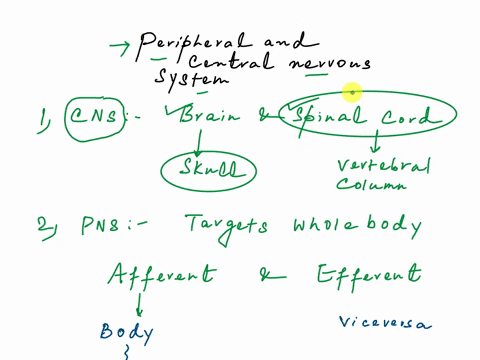 → Peripheral and
central nervous
system
1, CNS:- Brain & Spinal cord
Skull
Vertebral
column
2, PNS:- Targets whole body
Afferent & Efferent
Body
Viceversa